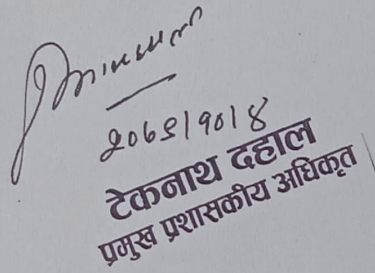 २०८१।१०।४
टेकनाथ दहाल
प्रमुख प्रशासकीय अधिकृत